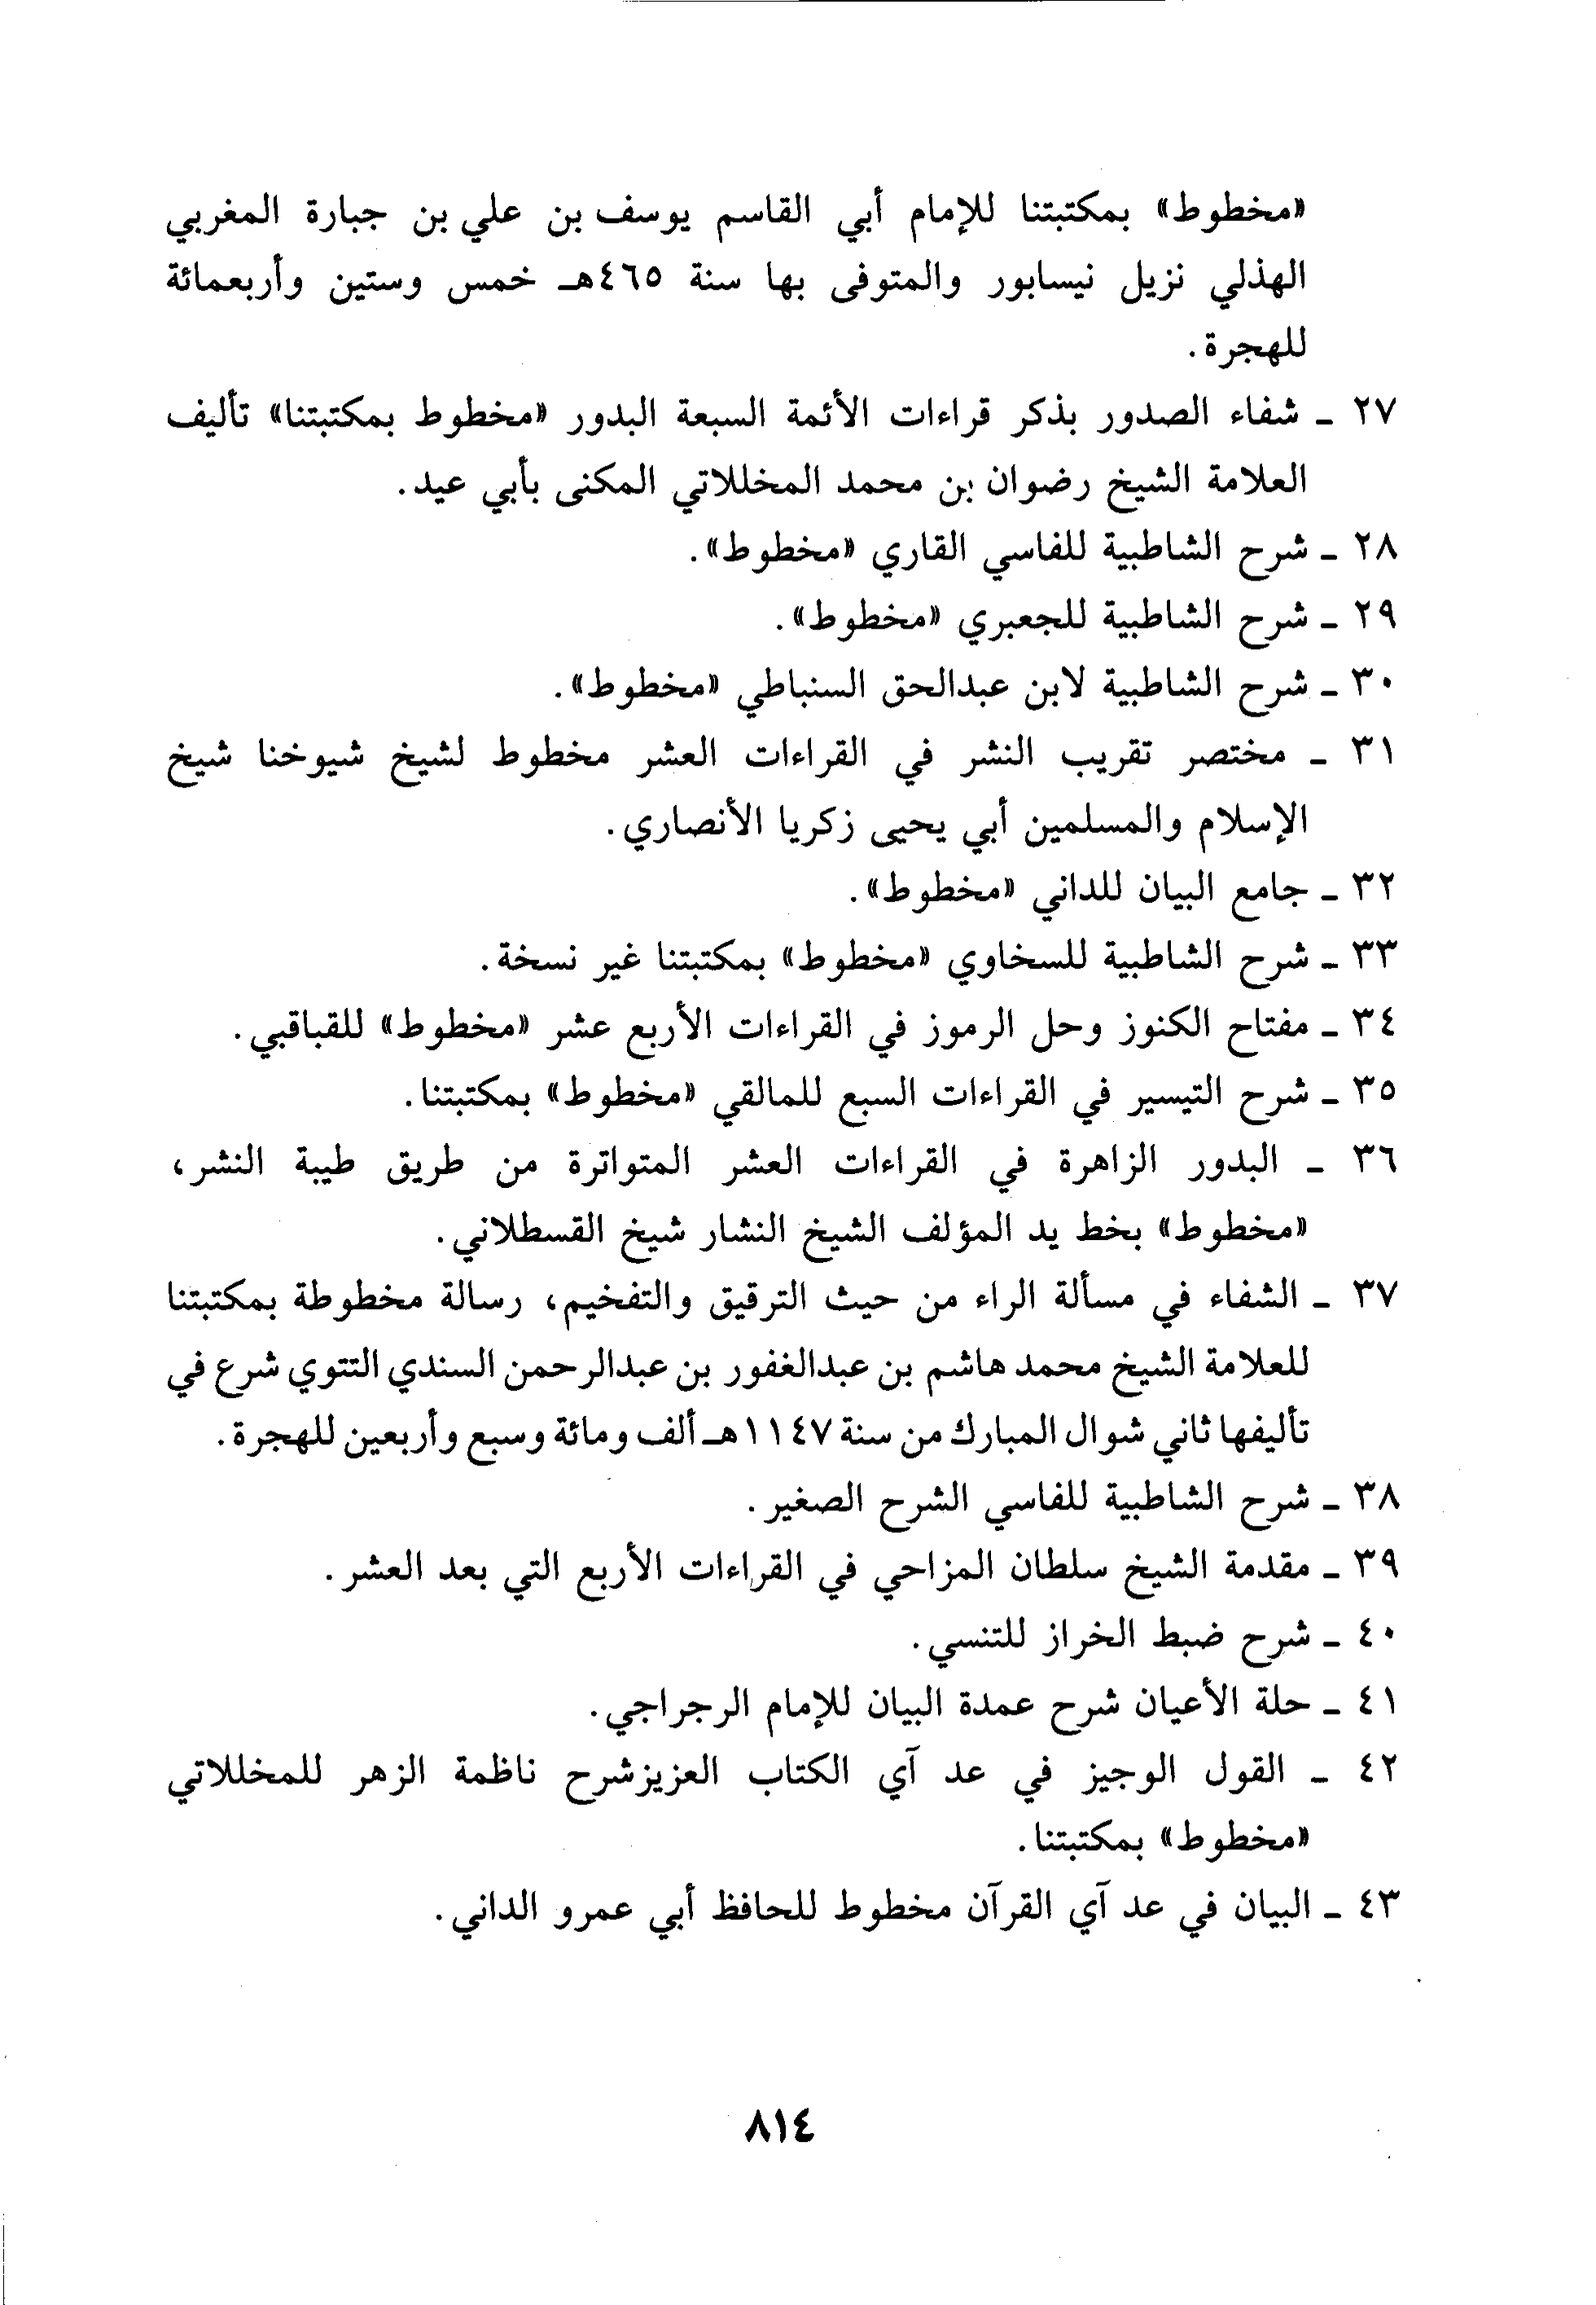 «مخطوط» بمكتبتنا للإمام أبي القاسم يوسف بن علي بن جبارة المغربي
الهذلي نزيل نيسابور والمتوفى بها سنة ٤٦٥هـ خمس وستين وأربعمائة
للهجرة.
٢٧ ـ شفاء الصدور بذكر قراءات الأئمة السبعة البدور «مخطوط بمكتبتنا» تأليف
العلامة الشيخ رضوان بن محمد المخللاتي المكنى بأبي عيد.
٢٨ ـ شرح الشاطبية للفاسي القاري «مخطوط».
٢٩ ـ شرح الشاطبية للجعبري «مخطوط».
٣٠ ـ شرح الشاطبية لابن عبدالحق السنباطي «مخطوط».
٣١ ـ مختصر تقريب النشر في القراءات العشر مخطوط لشيخ شيوخنا شيخ
الإسلام والمسلمين أبي يحيى زكريا الأنصاري.
٣٢ ـ جامع البيان للداني «مخطوط».
٣٣ ـ شرح الشاطبية للسخاوي «مخطوط» بمكتبتنا غير نسخة.
٣٤ ـ مفتاح الكنوز وحل الرموز في القراءات الأربع عشر «مخطوط» للقباقبي.
٣٥ ـ شرح التيسير في القراءات السبع للمالقي «مخطوط» بمكتبتنا.
٣٦ ـ البدور الزاهرة في القراءات العشر المتواترة من طريق طيبة النشر،
«مخطوط» بخط يد المؤلف الشيخ النشار شيخ القسطلاني.
٣٧ ـ الشفاء في مسألة الراء من حيث الترقيق والتفخيم، رسالة مخطوطة بمكتبتنا
للعلامة الشيخ محمد هاشم بن عبدالغفور بن عبدالرحمن السندي التتوي شرع في
تأليفها ثاني شوال المبارك من سنة ١١٤٧هـ ألف ومائة وسبع وأربعين للهجرة.
٣٨ ـ شرح الشاطبية للفاسي الشرح الصغير.
٣٩ ـ مقدمة الشيخ سلطان المزاحي في القراءات الأربع التي بعد العشر.
٤٠ ـ شرح ضبط الخراز للتنسي.
٤١ ـ حلة الأعيان شرح عمدة البيان للإمام الرجراجي.
٤٢ ـ القول الوجيز في عد آي الكتاب العزيزشرح ناظمة الزهر للمخللاتي
«مخطوط» بمكتبتنا.
٤٣ ـ البيان في عد آي القرآن مخطوط للحافظ أبي عمرو الداني.
٨١٤